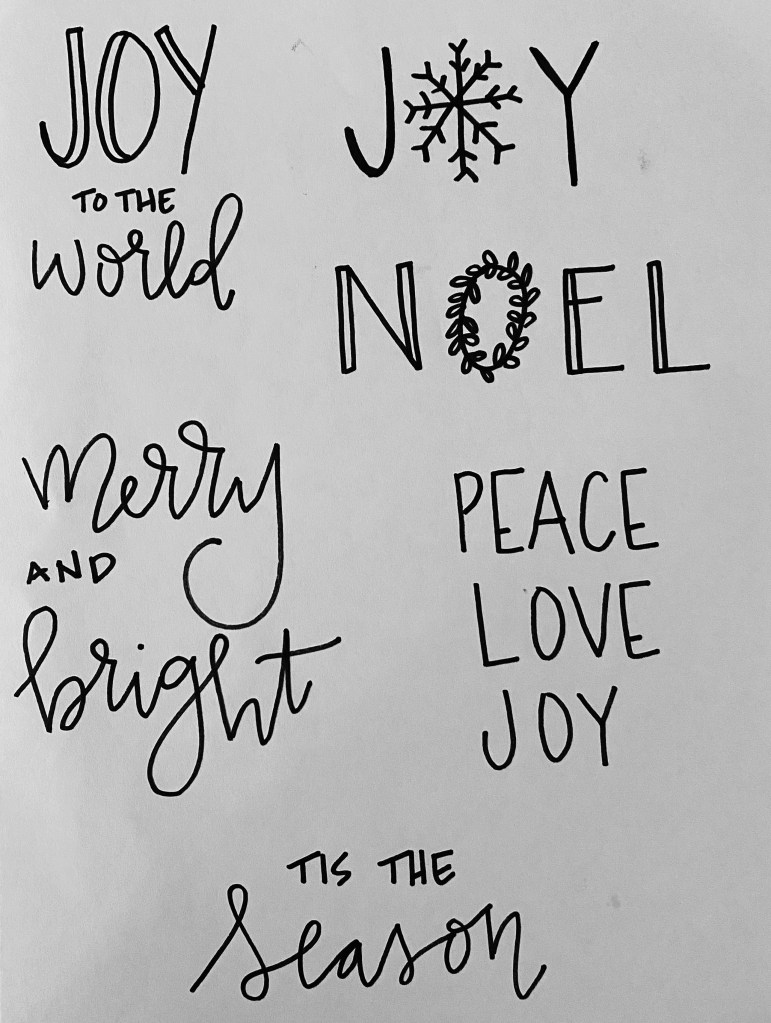 JOY
TO THE
world
JOY
NOEL
merry
AND
bright
PEACE
LOVE
JOY
TIS THE
season